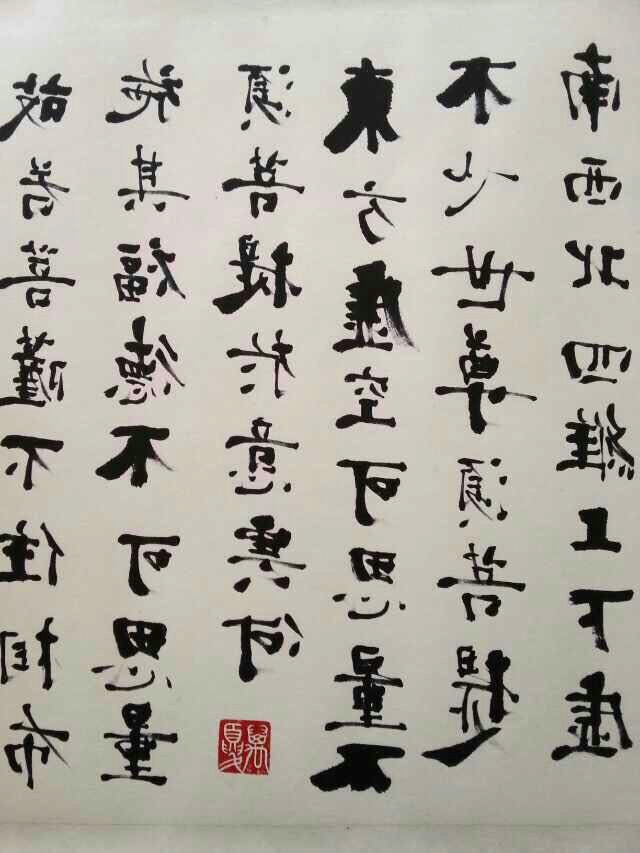 故若菩薩不住相布
施其福德不可思量
須菩提於意雲何
東方虛空可思量不
不也世尊須菩提
南西北四維上下虛